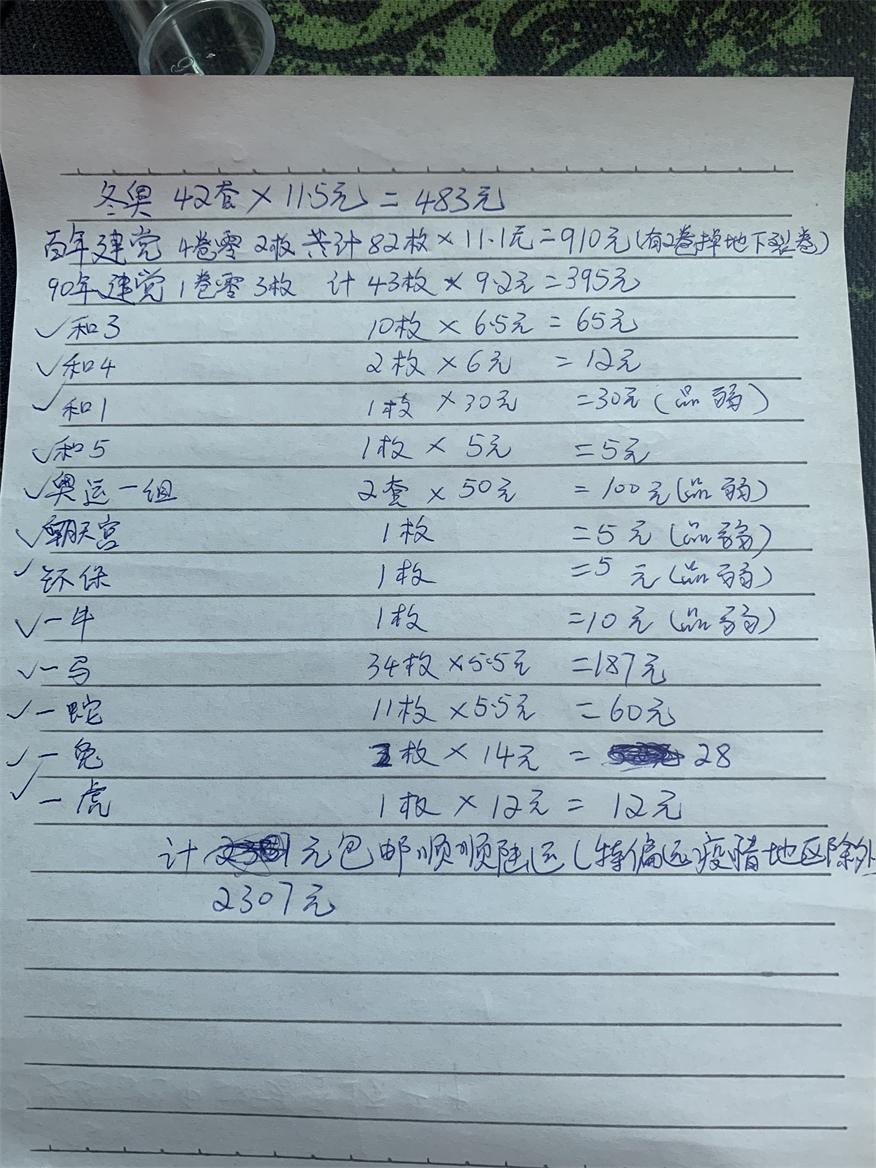 冬奥 42套×11.5元=483元
百年建党 4卷零2枚 共计82枚×11.1元=910元(有2卷掉地下裂卷)
90年建党1卷零3枚 计43枚×9.2元=395元
✓和3 10枚×6.5元=65元
✓和4 2枚×6元=12元
✓和1 1枚×30元=30元(品弱)
✓和5 1枚×5元=5元
✓奥运一组 2套×50元=100元(品弱)
✓朝天宫 1枚=5元(品弱)
✓环保 1枚=5元(品弱)
✓一牛 1枚=10元(品弱)
✓一马 34枚×5.5元=187元
✓一蛇 11枚×5.5元=60元
✓一兔 2枚×14元=28
✓一虎 1枚×12元=12元
计 元包邮顺顺陆运(特偏远疫情地区除外
2307元